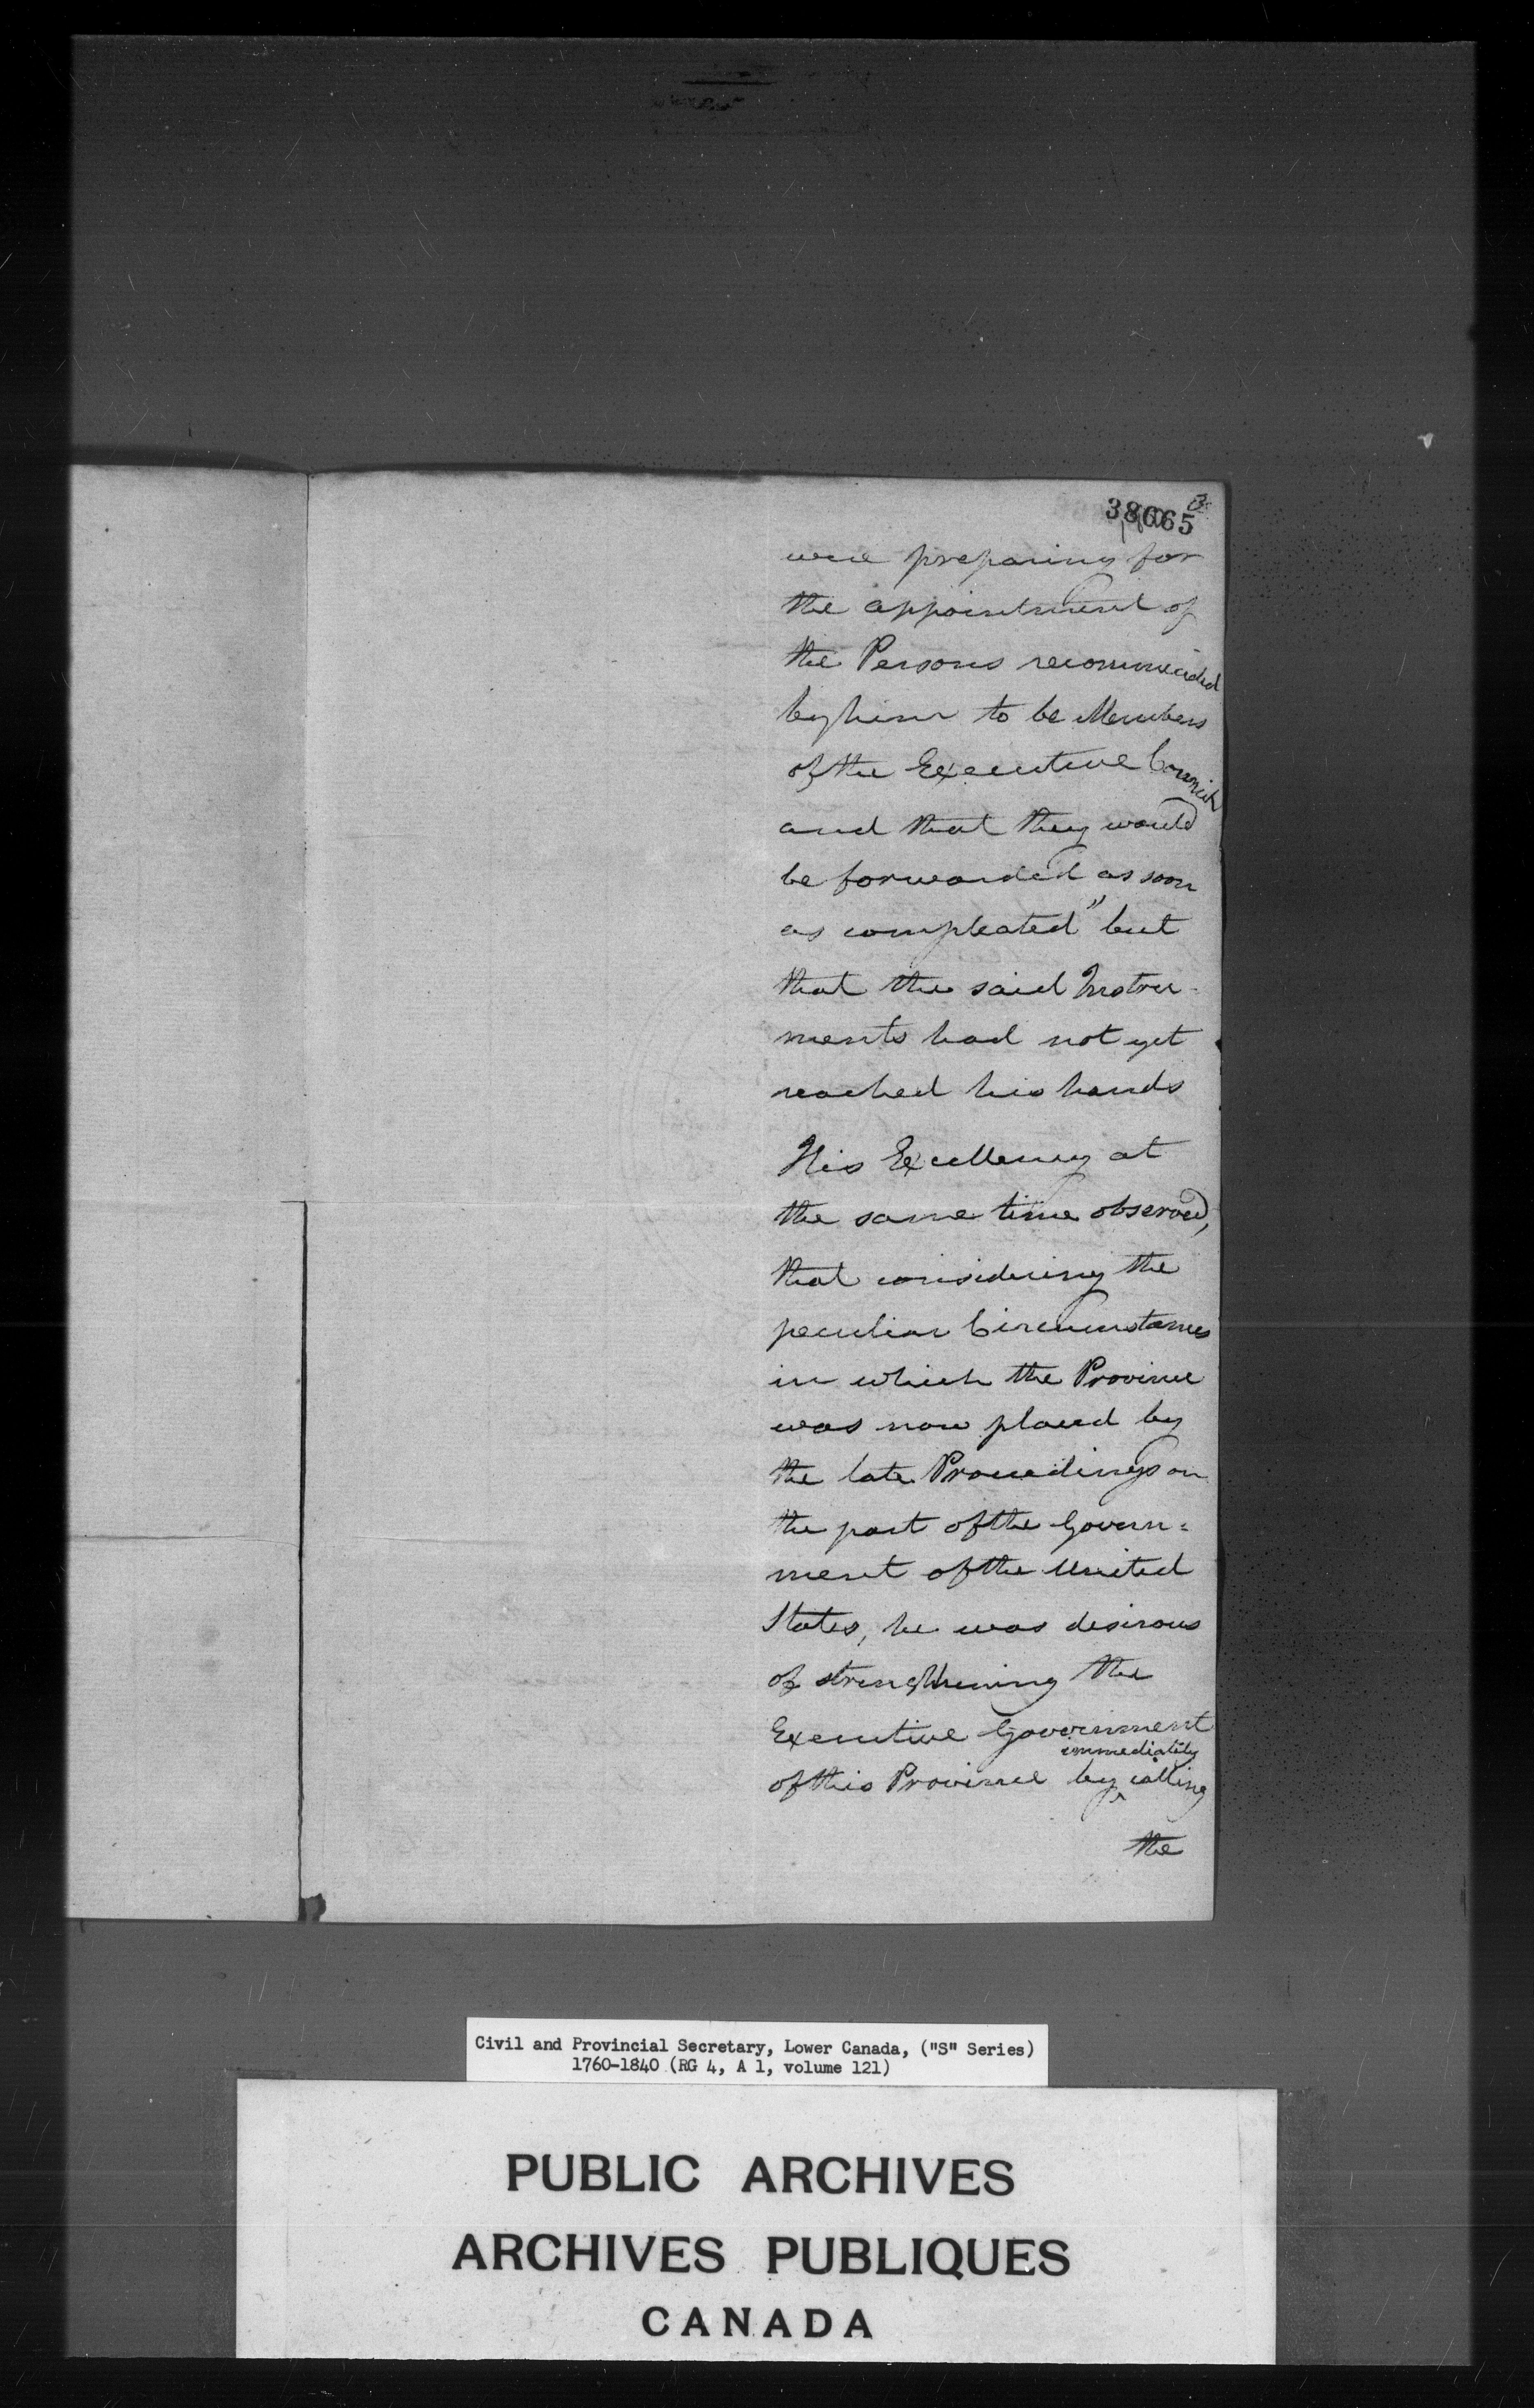 3
38065
were preparing for
the appointment of
the Persons recommended
by him to be Members
of the Executive Council
and that they would
be forwarded as soon
as compleated" but
that the said Instru-
ments had not yet
reached his hands
His Excellency at
the same time observed,
that considering the
peculiar Circumstances
in which the Province
was now placed by
the late Proceedings on
the part of the Govern=
ment of the United
States, he was desirous
of strengthening the
Executive Government
immediately
of this Province by calling
the
Civil and Provincial Secretary, Lower Canada, ("S" Series)
1760-1840 (RG 4, A 1, volume 121)
PUBLIC ARCHIVES
ARCHIVES PUBLIQUES
CANADA